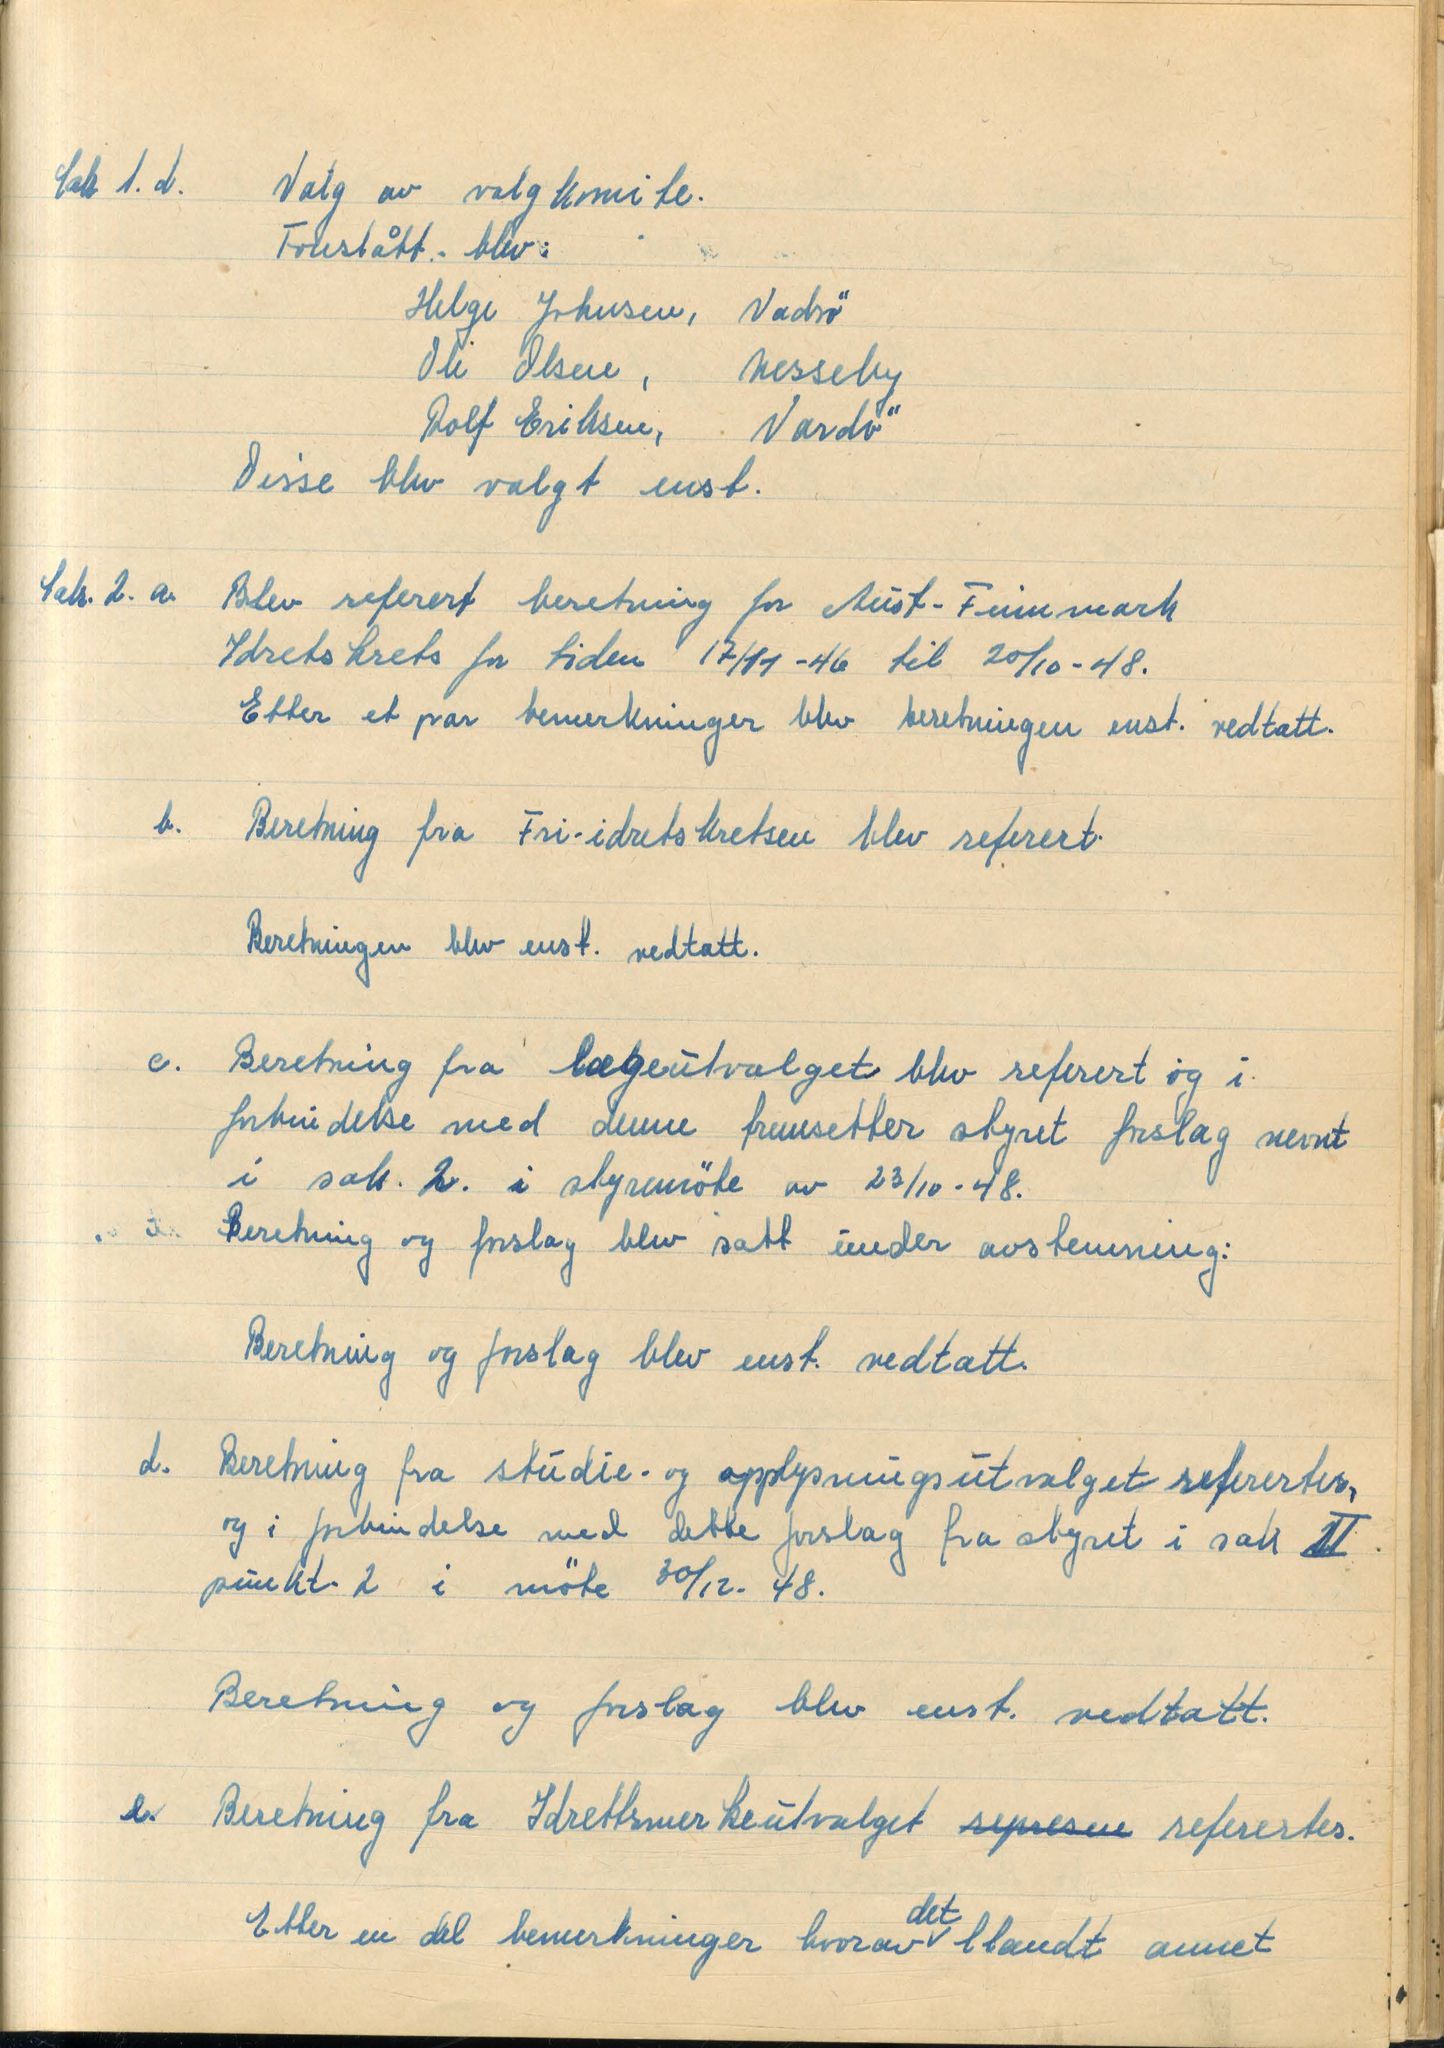 Sak 1. d. Valg av valgkomite.
Foreslått. blev:
Helge Johnsen, Vadsö
Oli Olsen, Nesseby
Rolf Eriksen, Vardö
Disse blev valgt enst.
Sak. 2. a. Blev referert beretning for Aust-Finnmark
Idretskrets for tiden 17/11-46 til 20/10-48.
Etter et par bemerkninger blev beretningen enst. vedtatt.
b. Beretning fra Fri-idretskretsen blev referert.
Beretningen blev enst. vedtatt.
c. Beretning fra lægeutvalget blev referert og i
forbindelse med denne fremsetter styret forslag nevnt
i sak. 2. i styremöte av 23/10-48.
Beretning og forslag blev satt under avstemning:
Beretning og forslag blev enst. vedtatt.
d. Beretning fra studie- og opplysningsutvalget refertes,
og i forbindelse med dette forslag fra styret i sak II
punkt. 2 i möte 30/12-48.
Beretning og forslag blev enst. vedtatt.
e. Beretning fra Idrettsmerkeutvalget represen refertes.
Etter en del bemerkninger hvorav det blandt annet